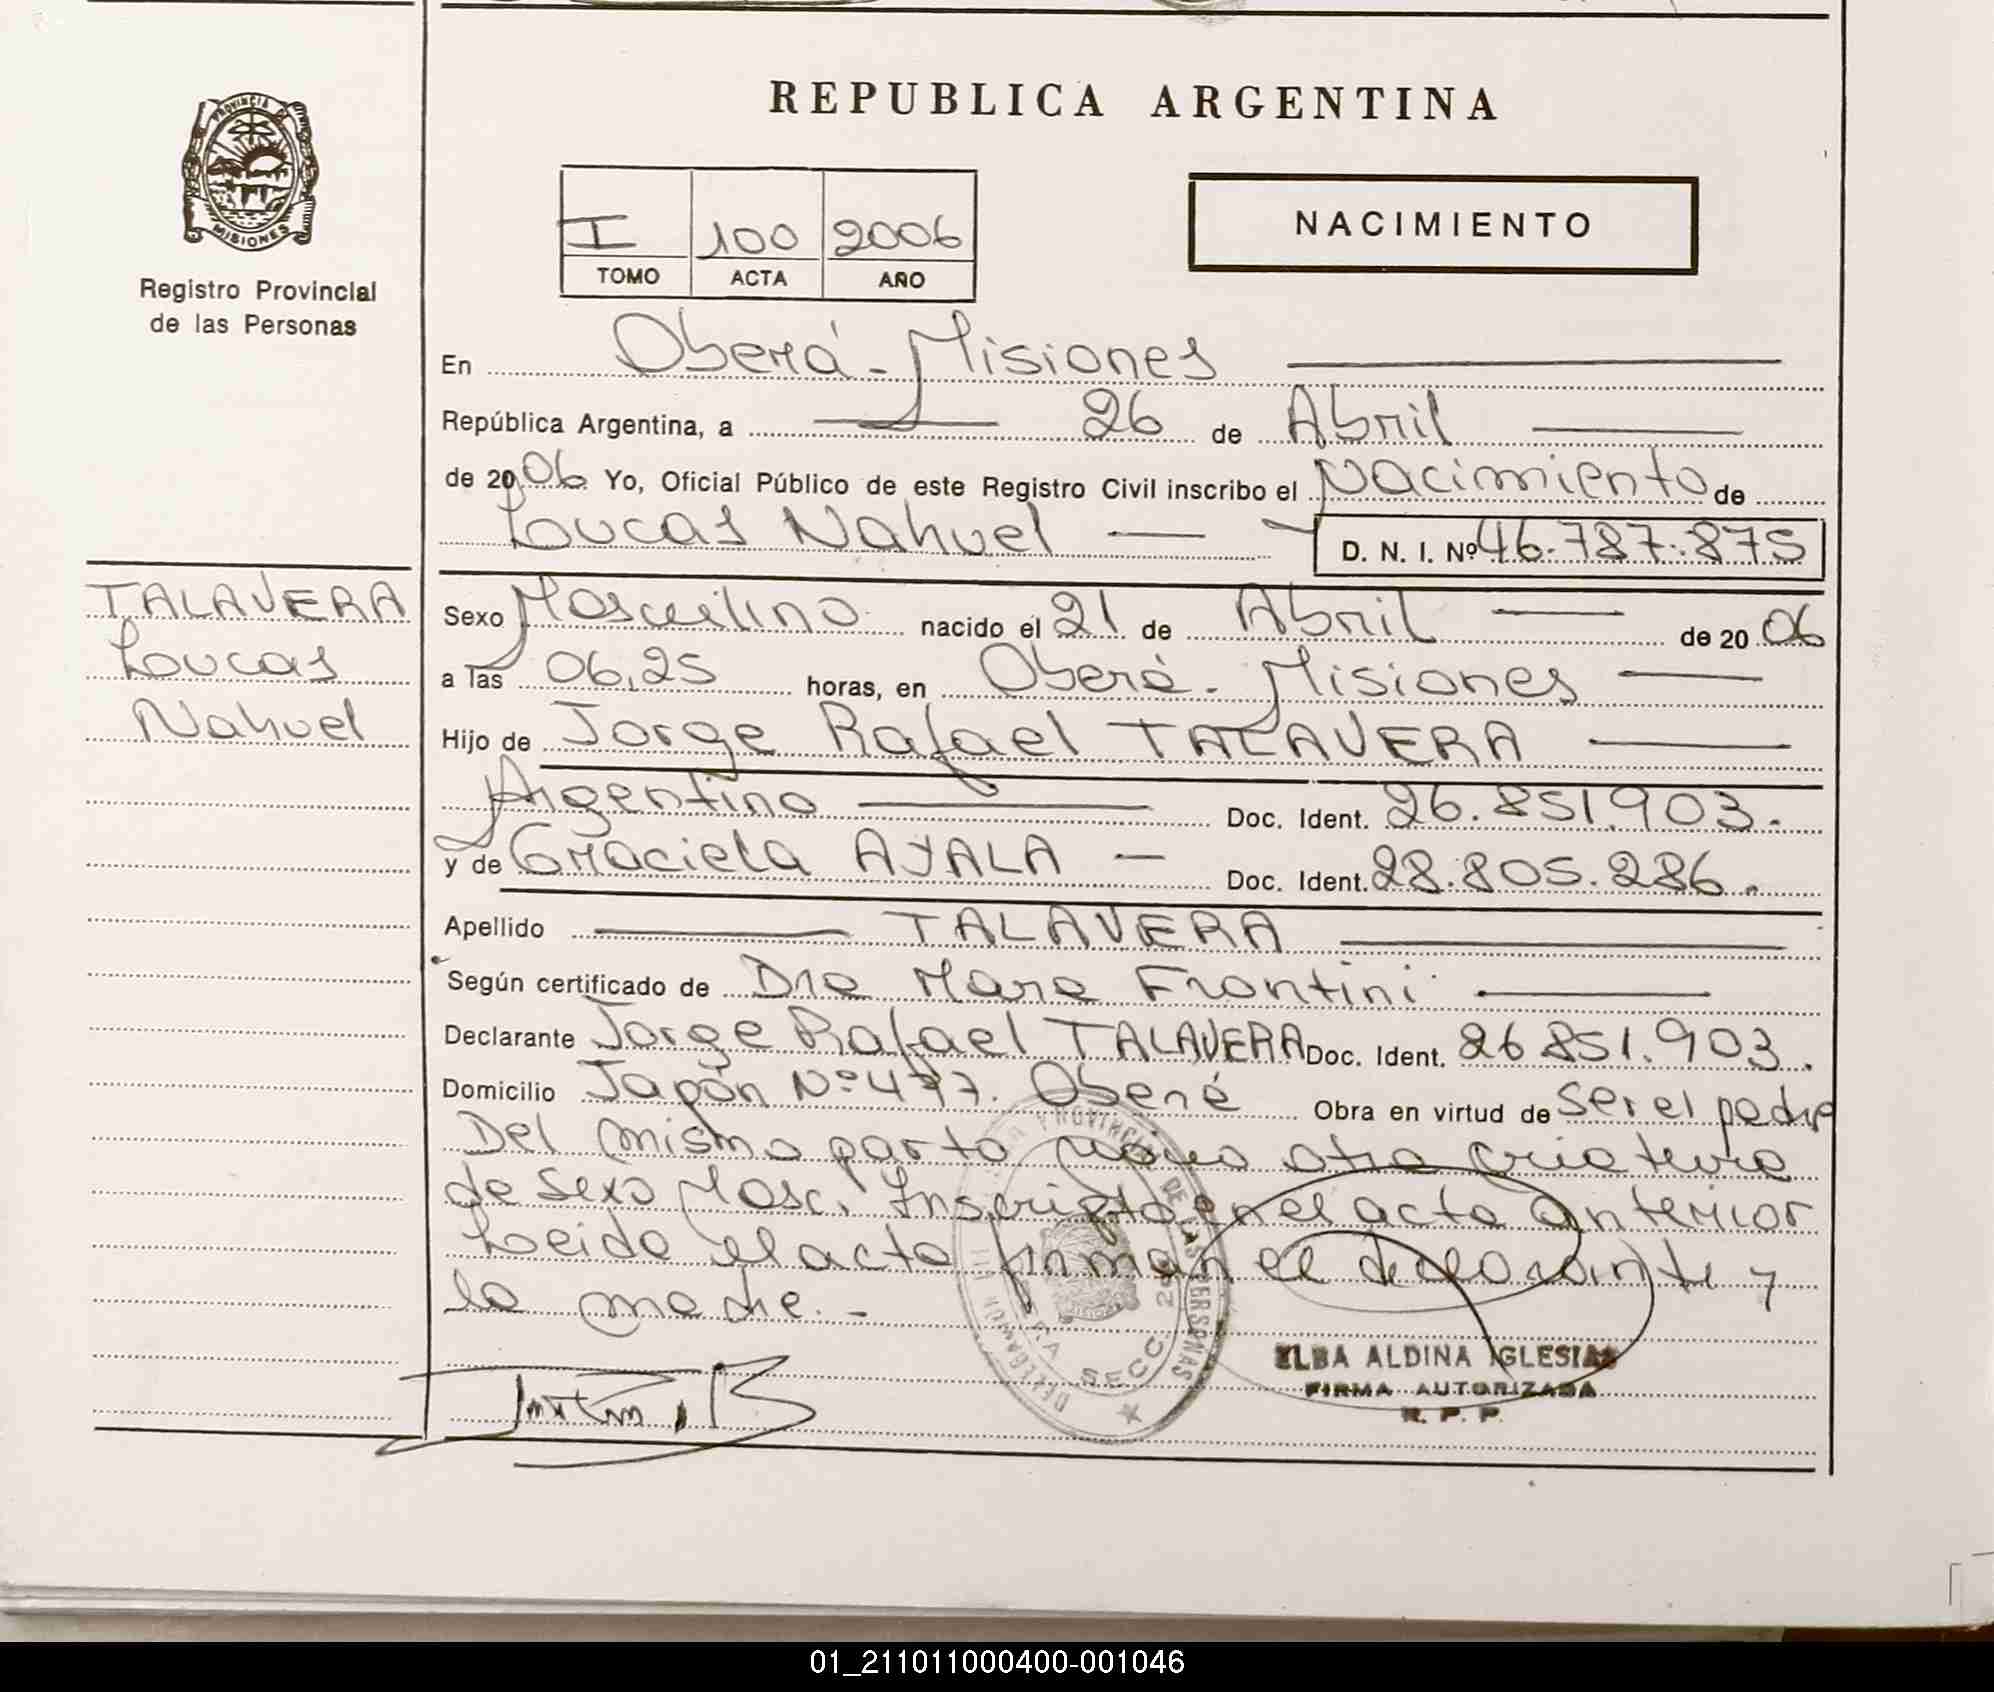 REPUBLICA ARGENTINA
PROVINCIA DE
MISIONES
Registro Provincial
de las Personas
I 100 2006
TOMO ACTA AÑO
NACIMIENTO
En Oberá - Misiones
República Argentina, a 26 de Abril
de 2006 Yo, Oficial Público de este Registro Civil inscribo el Nacimiento de
Loucas Nahuel D. N. I. Nº 46.787.875
TALAVERA
Loucas
Nahuel
Sexo Masculino nacido el 21 de Abril de 2006
a las 06,25 horas, en Oberá - Misiones
Hijo de Jorge Rafael TALAVERA
Argentino Doc. Ident. 26.851.903.
y de Graciela AYALA Doc. Ident. 28.805.286.
Apellido TALAVERA
Según certificado de Dra Mara Frontini
Declarante Jorge Rafael TALAVERA Doc. Ident. 26 851.903.
Domicilio Japón Nº 477. Oberá Obra en virtud de ser el padre
Del mismo parto otra criatura
de sexo Masc. Inscripto en el acta anterior
Leida el acta firman el declarante y
la madre. -
PROVINCIAL DE LAS PERSONAS
SECC.
ELBA ALDINA IGLESIAS
FIRMA AUTORIZADA
R. P. P.
01_211011000400-001046